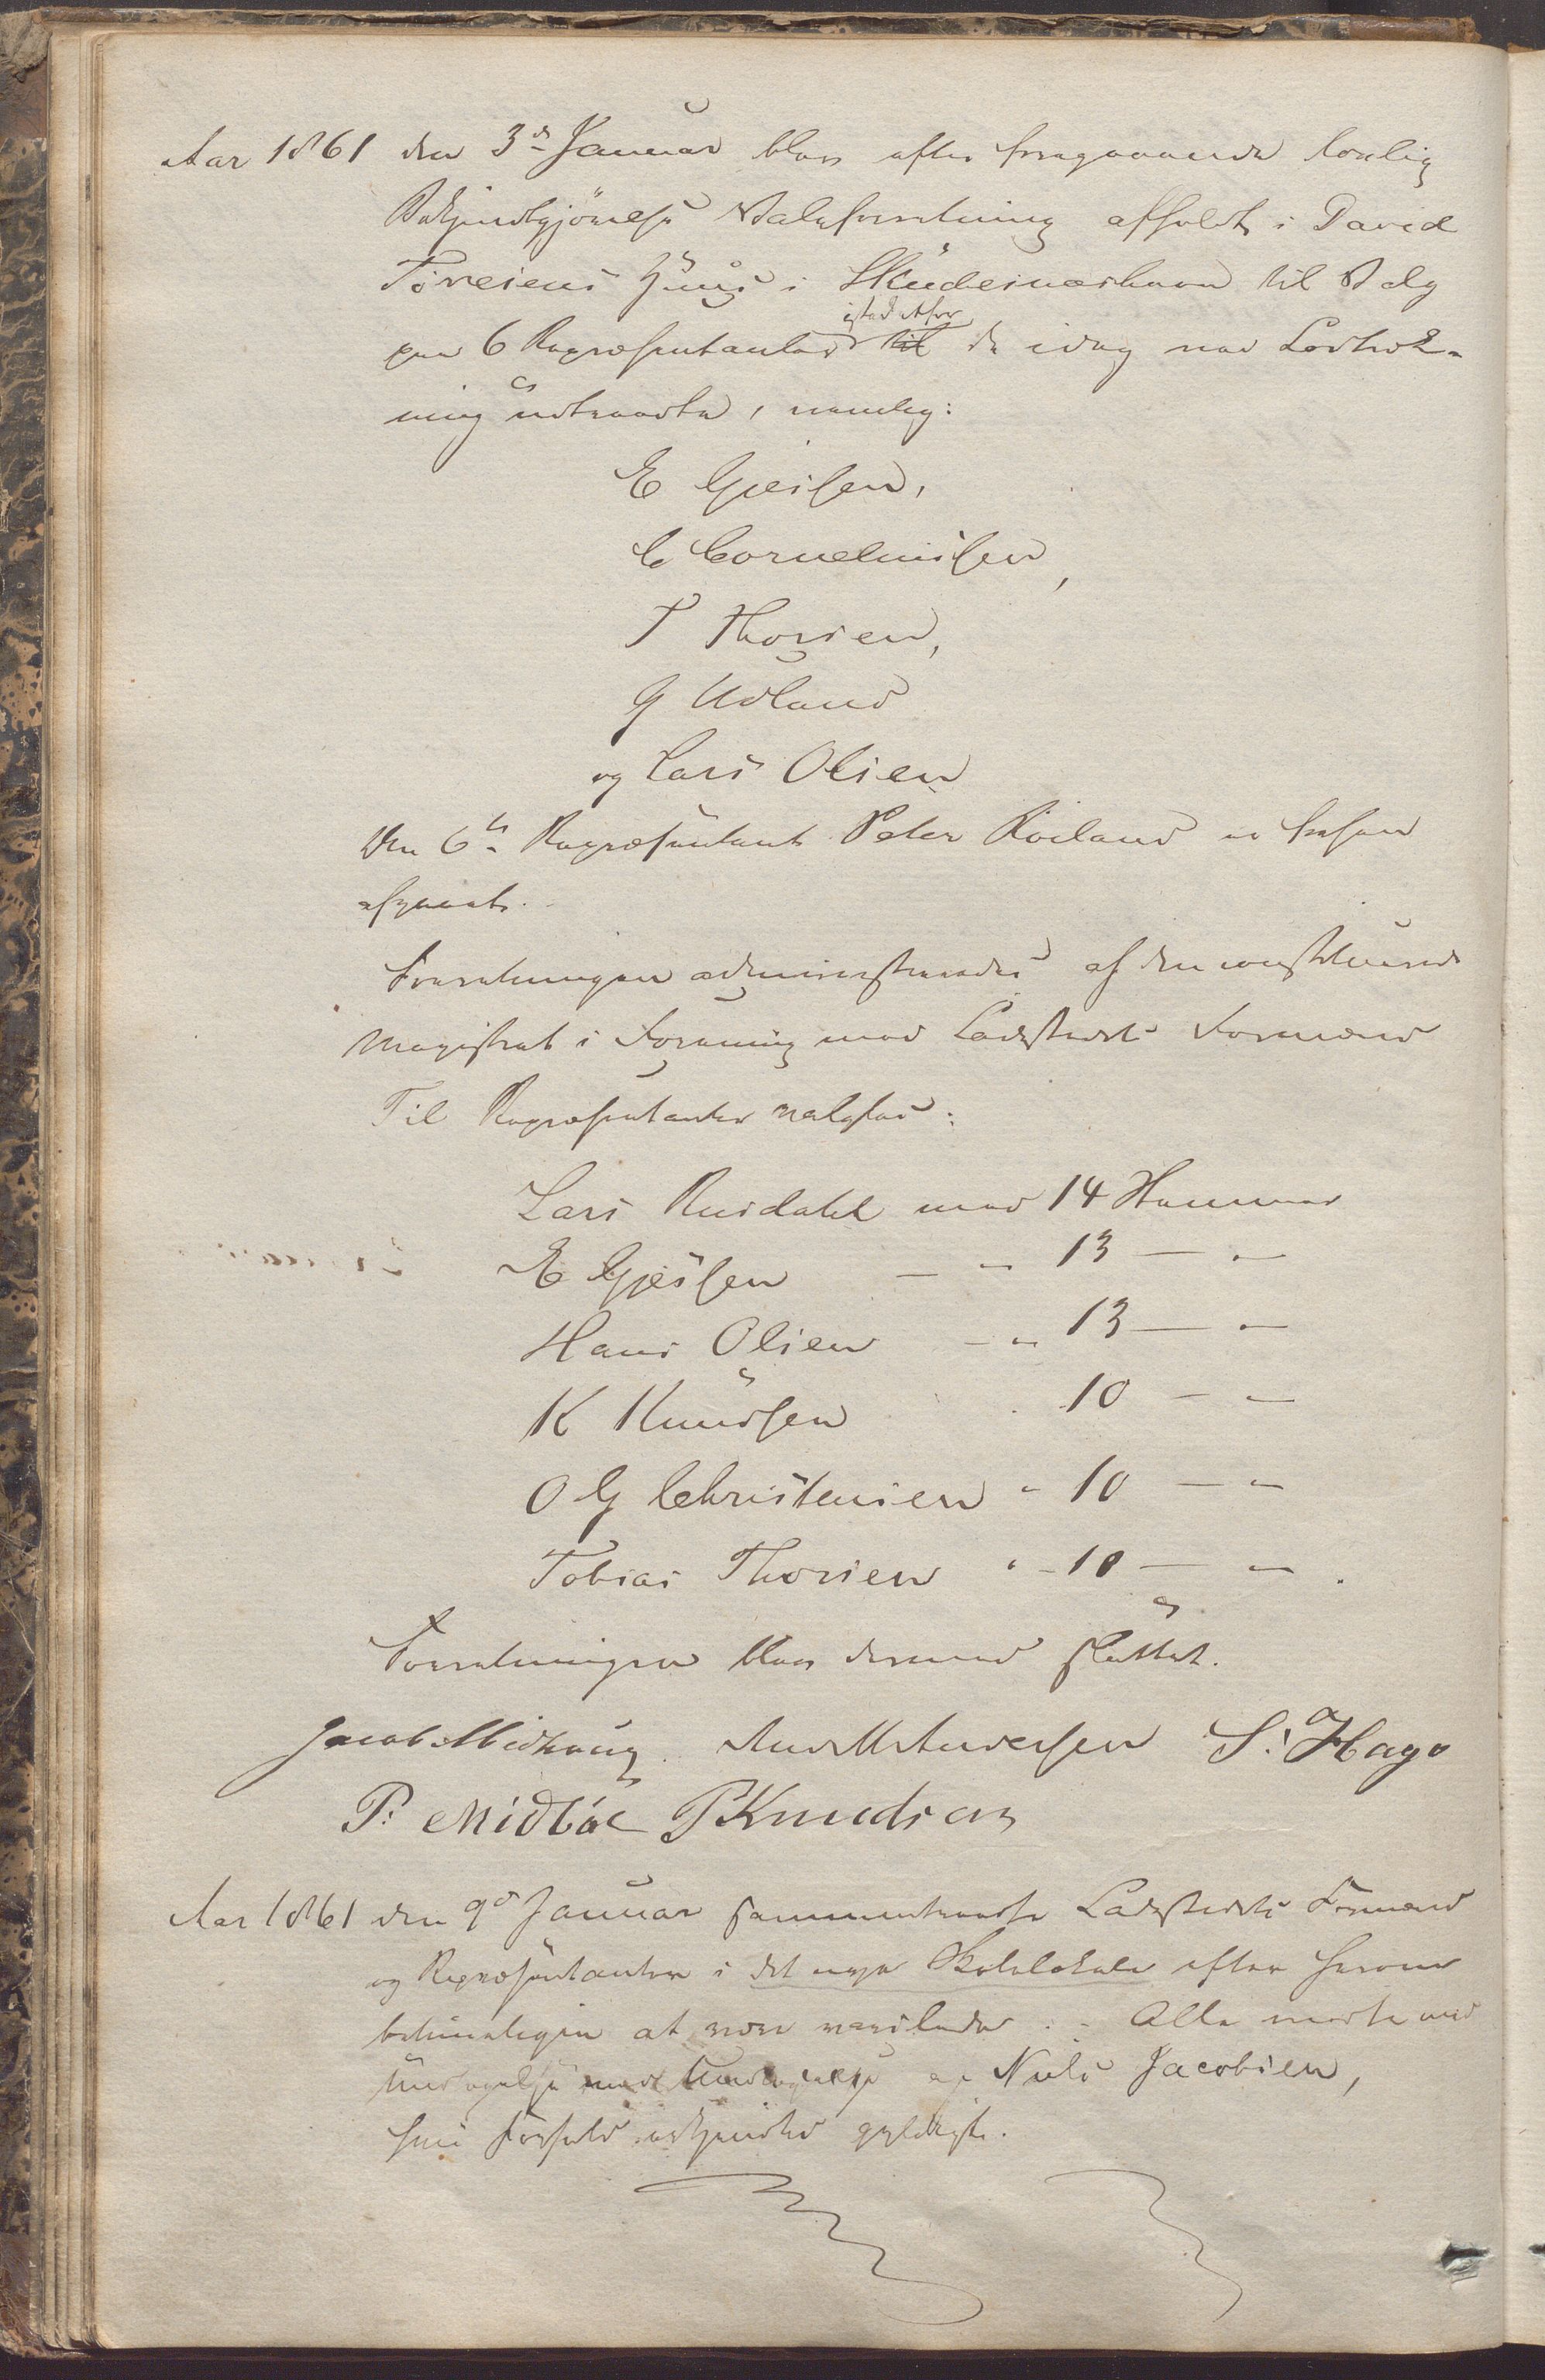 Aar 1861 den 3de Januar blev efter foregaaende lovlig
Bekjendtgjörelse Valgforretning afholdt i David
Törresens Huus i Skudesneshavn til Valg
istedetfor
paa 6 Repræsentanter til de idag ved Lodtræk-
ning udtraadte, nemlig:
E Gjersen,
C Corneliussen,
T Thorsen,
G Udland
og Lars Olsen
Den 6te Repræsentant Peter Röiland er forhen
afgaaet.
Forretningen administreredes af den constituerede
Magistrat i Forening med Ladestedets Formænd
Til Repræsentanter valgtes:
Lars Rusdahl med 14 Stemmer
E Gjessen — " 13 — "
Hans Olsen — " 13 — "
K Knudsen 10 — "
O G Christensen " 10 — "
Tobias Thorsen " 10 — "
Forretningen blev dermed sluttet.
Jacob Midhaug. And M Andersen S. Hage
P. Midböe P Knudsen
Aar 1861 den 9de Januar sammentraadte Ladestedets Formænd
og Repræsentanter i det nye Skolelokale efter herom
betimeligen at være varslede. - Alle mødte med
Undtagelse af Niels Jacobsen,
hvis Forfald ansees gyldigt.